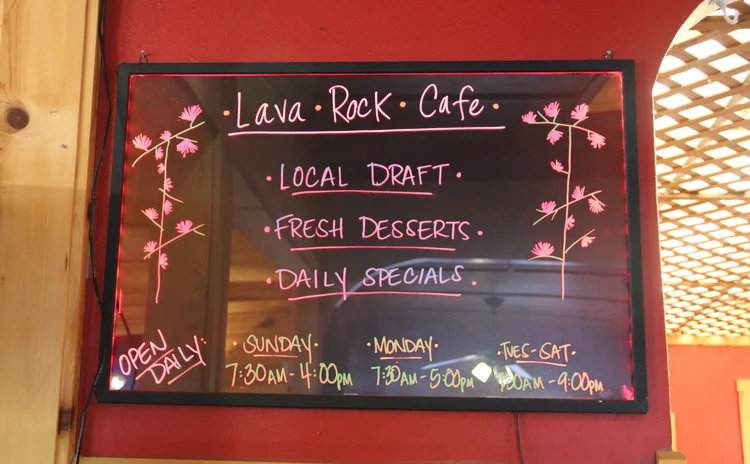 ·Lava·Rock·Cafe·
·LOCAL DRAFT·
·FRESH DESSERTS·
·DAILY SPECIALS·
OPEN DAILY:
·SUNDAY·
7:30AM-4:00PM
·MONDAY·
7:30AM-5:00PM
·TUES-SAT·
7:30AM-9:00PM